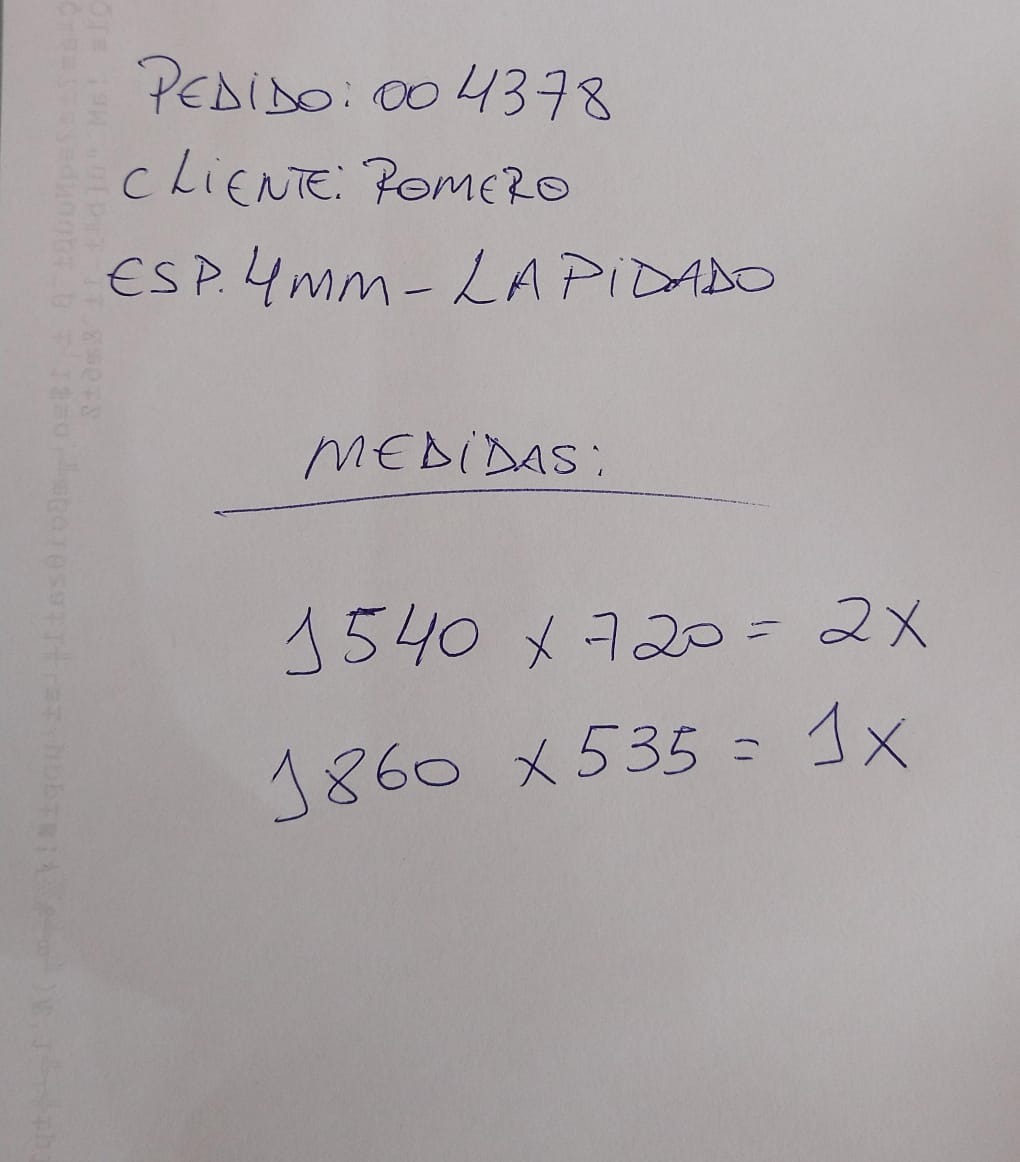 PEDIDO: 004378
CLIENTE: ROMERO
ESP. 4MM - LAPIDADO
MEDIDAS:
1540 x 720 = 2X
1860 x 535 = 1X